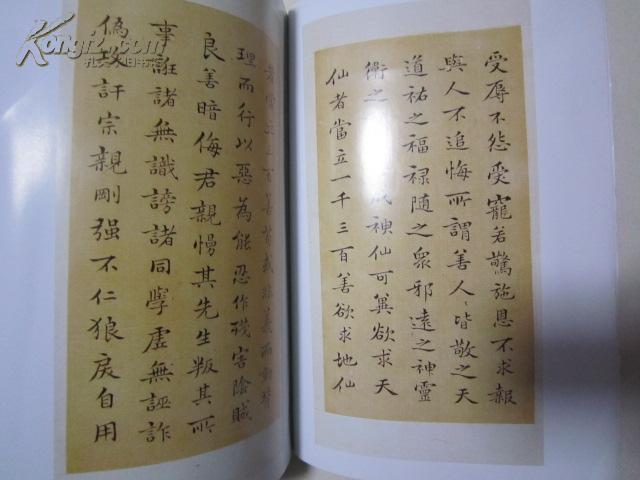 受辱不怨受寵若驚施恩不求報
與人不追悔所謂善人人皆敬之天
道祐之福禄隨之衆邪遠之神靈
衛之成神仙可冀欲求天
仙者當立一千三百善欲求地仙
者當立三百善苟或非義而動背
理而行以惡為能忍作殘害陰賊
良善暗侮君親慢其先生叛其所
事誑諸無識謗諸同學虛無誣詐
偽攻訐宗親剛强不仁狼戾自用
Kongfz.com
孔夫子旧书网